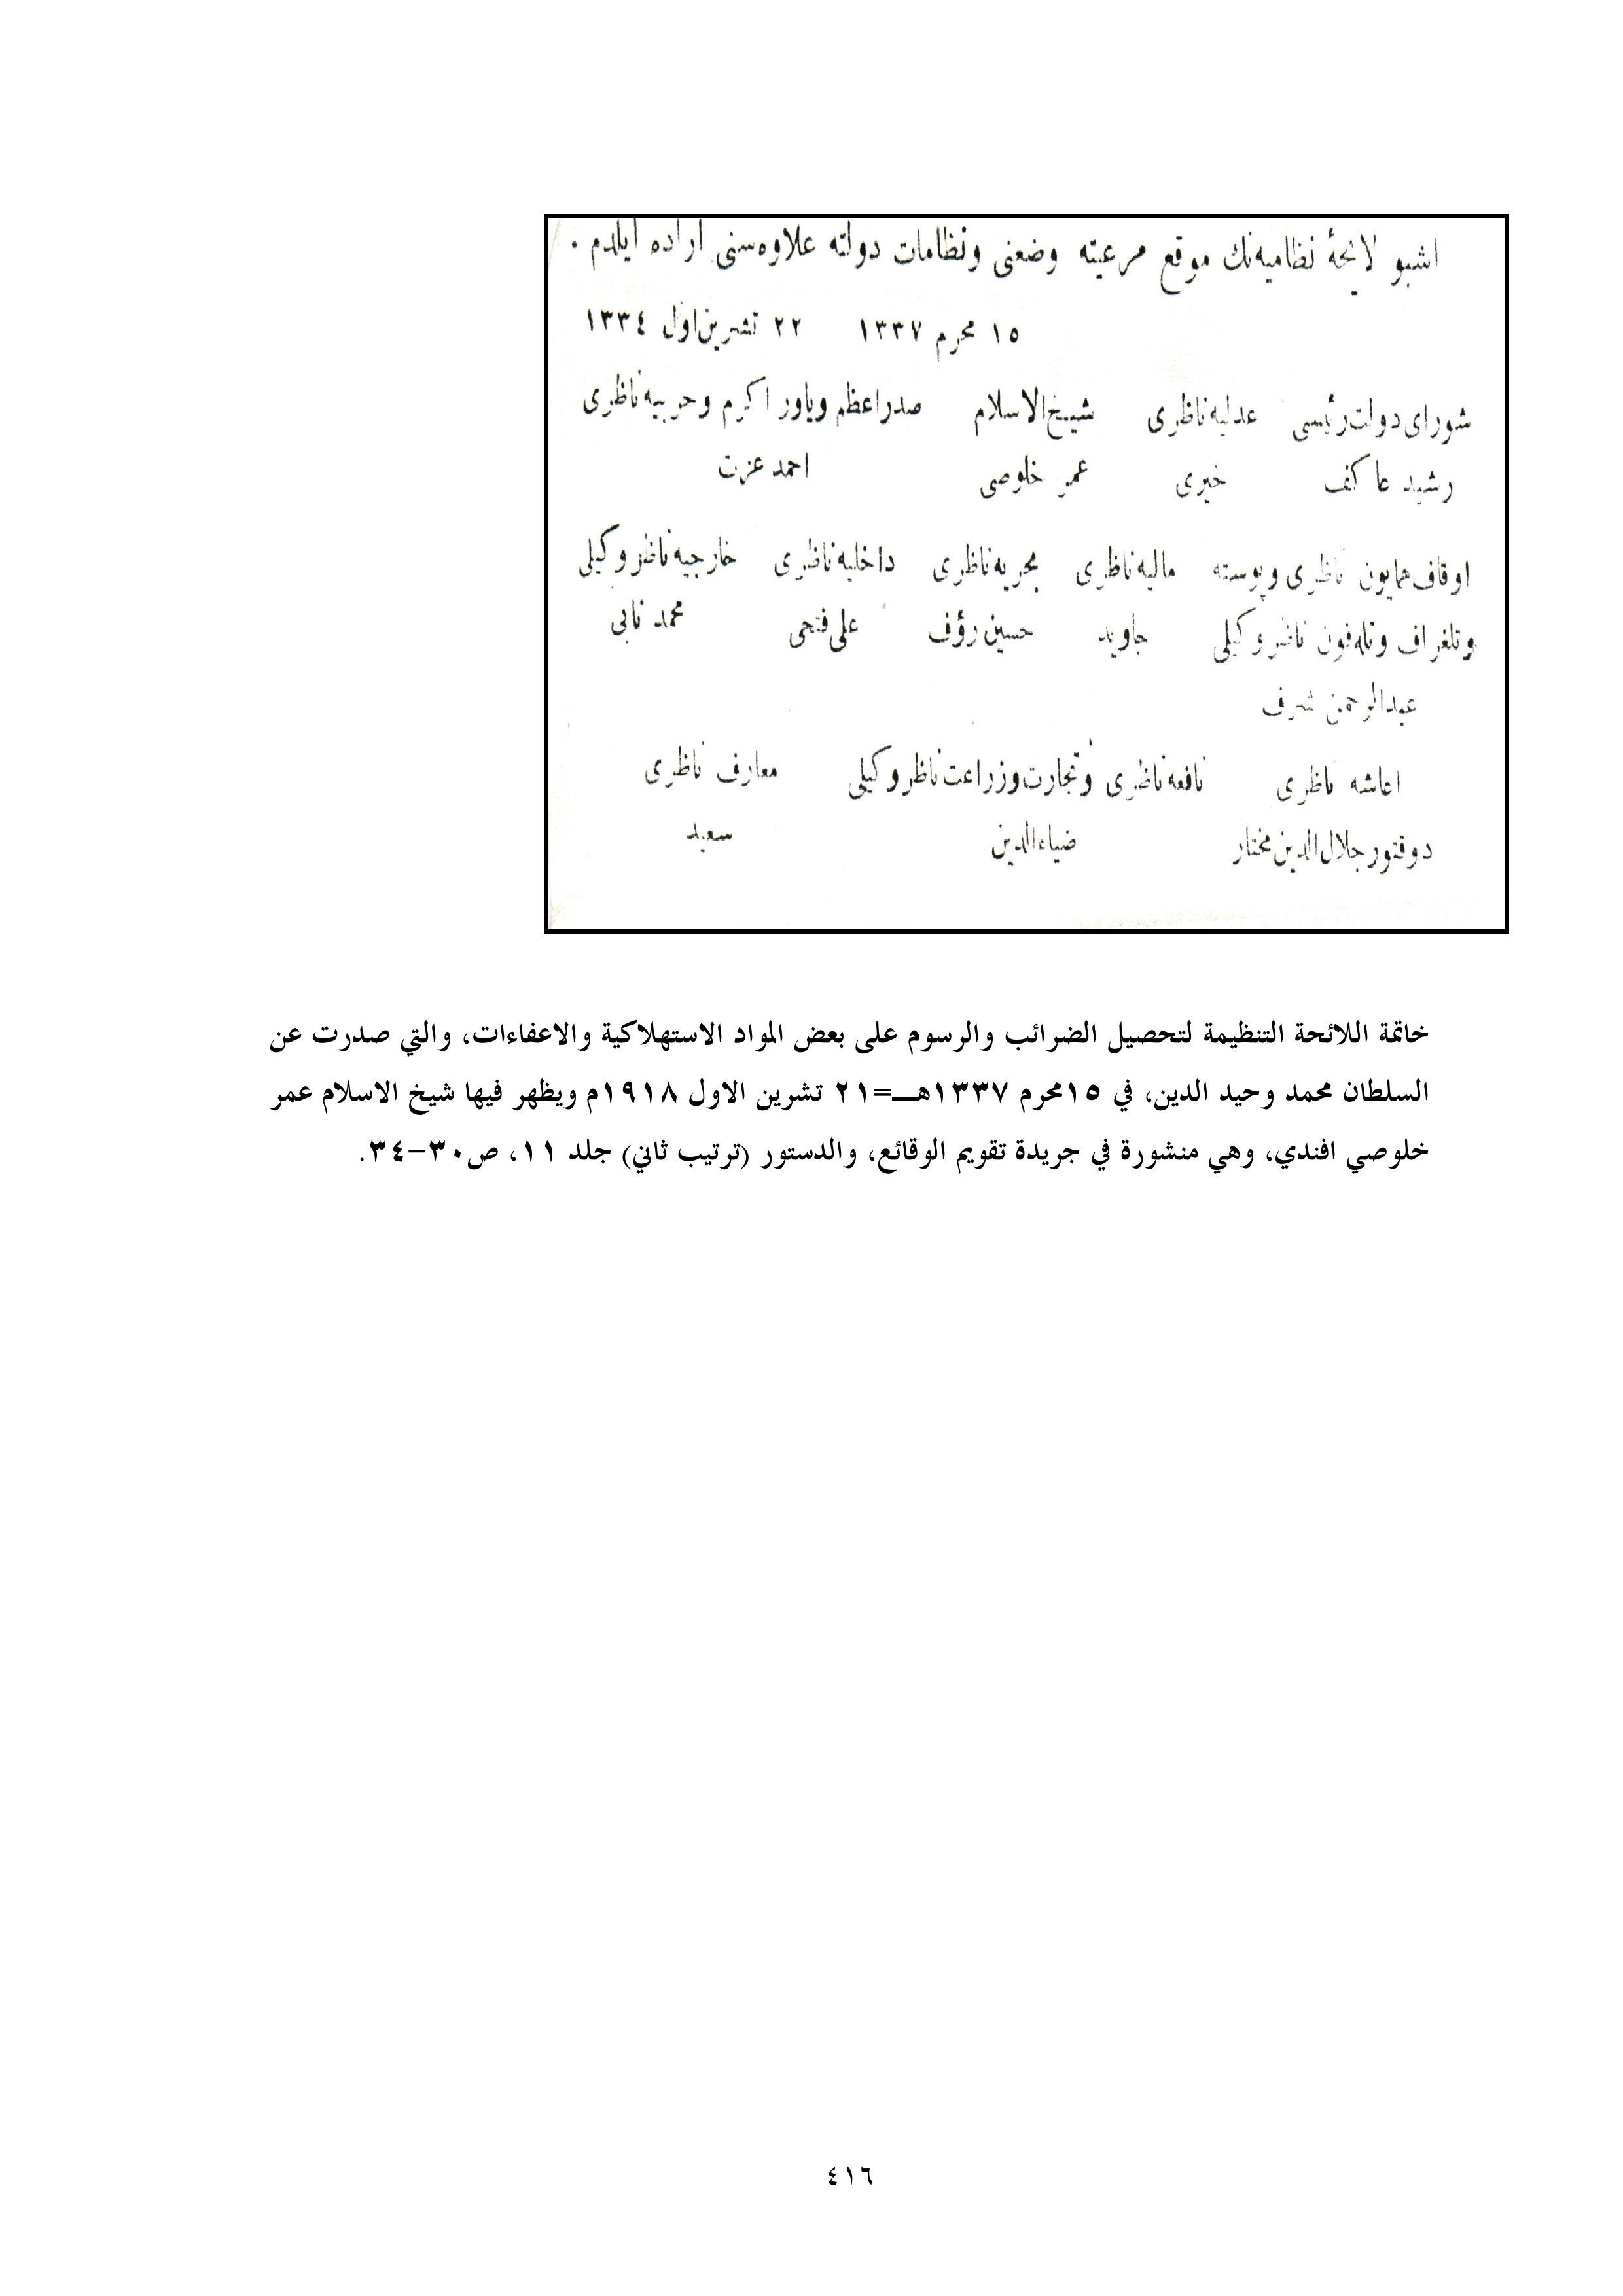 اشبو لایحۀ نظامیه‌نك موقع مرعیته وضعنی ونظامات دولته علاوه‌سنی اراده ایلدم .
١٥ محرم ١٣٣٧ ٢٢ تشرین‌اول ١٣٣٤
شورای‌دولت‌رئیسی عدلیه‌ناظری شیخ‌الاسلام صدراعظم ویاور اکرم وحربیه‌ناظری
رشید عاکف خیری عمر خلوصی احمد عزت
اوقاف‌همایون ناظری وپوسته مالیه‌ناظری بحریه‌ناظری داخلیه‌ناظری خارجیه‌ناظر وکیلی
وتلغراف وتله‌فون ناظر وکیلی جاوید حسین‌رؤف علی‌فتحی محمد نابی
عبدالرحمن شرف
اعاشه ناظری نافعه‌ناظری وتجارت‌وزراعت‌ناظر وکیلی معارف ناظری
دوقتور جلال‌الدین‌مختار ضیاءالدین سعید
خاتمة اللائحة التنظيمة لتحصيل الضرائب والرسوم على بعض المواد الاستهلاكية والاعفاءات، والتي صدرت عن
السلطان محمد وحيد الدين، في ١٥محرم ١٣٣٧هـــ=٢١ تشرين الاول ١٩١٨م ويظهر فيها شيخ الاسلام عمر
خلوصي افندي، وهي منشورة في جريدة تقويم الوقائع، والدستور (ترتيب ثاني) جلد ١١، ص٣٠-٣٤.
٤١٦